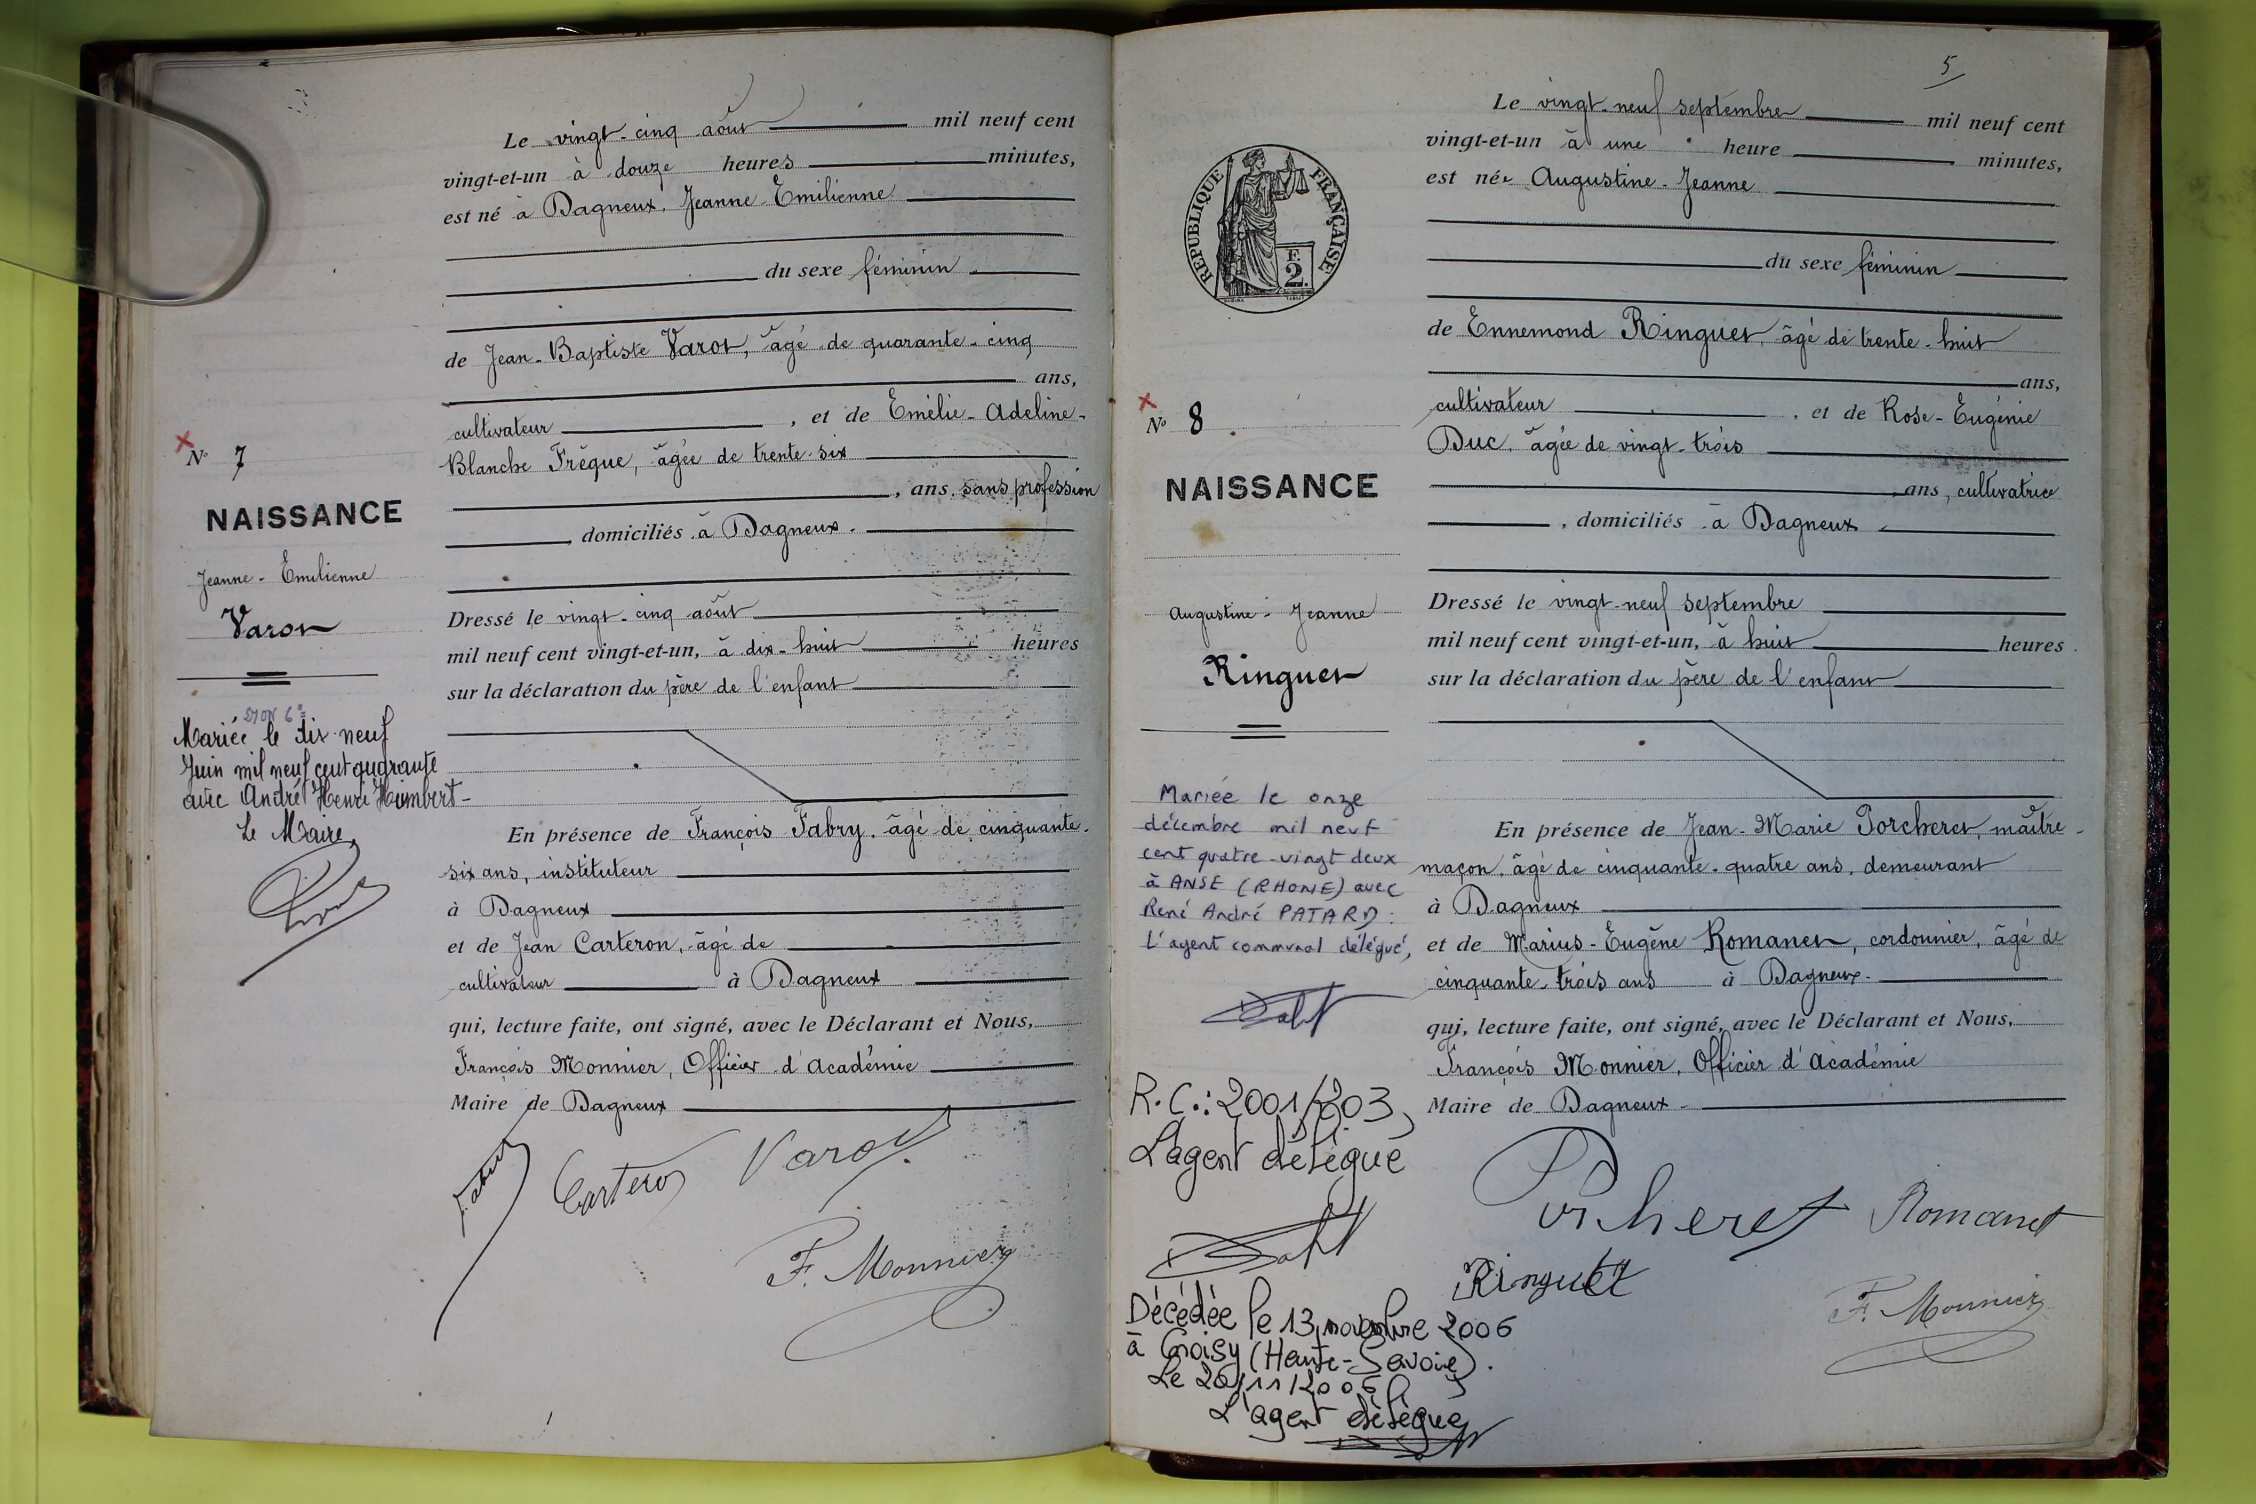 Le vingt-cinq août mil neuf cent
vingt-et-un à douze heures minutes,
est né à Dagneux, Jeanne-Emilienne
du sexe féminin
de Jean-Baptiste Varot, âgé de quarante-cinq
ans,
cultivateur, et de Emélie-Adeline-
Blanche Frêque, âgée de trente-six
, ans, sans profession
, domiciliés à Dagneux.
Dressé le vingt-cinq août
mil neuf cent vingt-et-un, à dix-huit heures
sur la déclaration du père de l'enfant
En présence de François Fabry, âgé de cinquante-
six ans, instituteur
à Dagneux
et de Jean Carteron, âgé de
cultivateur à Dagneux
qui, lecture faite, ont signé, avec le Déclarant et Nous,
François Monnier, Officier d'Académie
Maire de Dagneux
Fabry Carteron Varot
F. Monnier
N° 7
NAISSANCE
Jeanne-Emilienne
Varot
LYON 6e
Mariée le dix-neuf
Juin mil neuf cent quarante
avec André Henri Humbert-
Le Maire,
5
Le vingt-neuf septembre mil neuf cent
vingt-et-un à une heure minutes,
est née Augustine-Jeanne
du sexe féminin
de Ennemond Ringuet, âgé de trente-huit
ans,
cultivateur, et de Rose-Eugénie
Duc, âgée de vingt-trois
, ans, cultivatrice
, domiciliés à Dagneux.
Dressé le vingt-neuf septembre
mil neuf cent vingt-et-un, à huit heures
sur la déclaration du père de l'enfant
En présence de Jean-Marie Porcheret, maître-
maçon, âgé de cinquante-quatre ans, demeurant
à Dagneux
et de Marius-Eugène Romanet, cordonnier, âgé de
cinquante-trois ans à Dagneux.
qui, lecture faite, ont signé, avec le Déclarant et Nous,
François Monnier, Officier d'Académie
Maire de Dagneux
Porcheret Romanet
Ringuet
F. Monnier
RÉPUBLIQUE FRANÇAISE
F.
2.
N° 8
NAISSANCE
Augustine-Jeanne
Ringuet
Mariée le onze
décembre mil neuf
cent quatre-vingt deux
à ANSE (RHONE) avec
René André PATARD.
L'agent communal délégué,
R.C.: 2001/203,
L'agent délégué
Décédée le 13 novembre 2006
à Groisy (Haute-Savoie).
Le 20/11/2006,
L'agent délégué